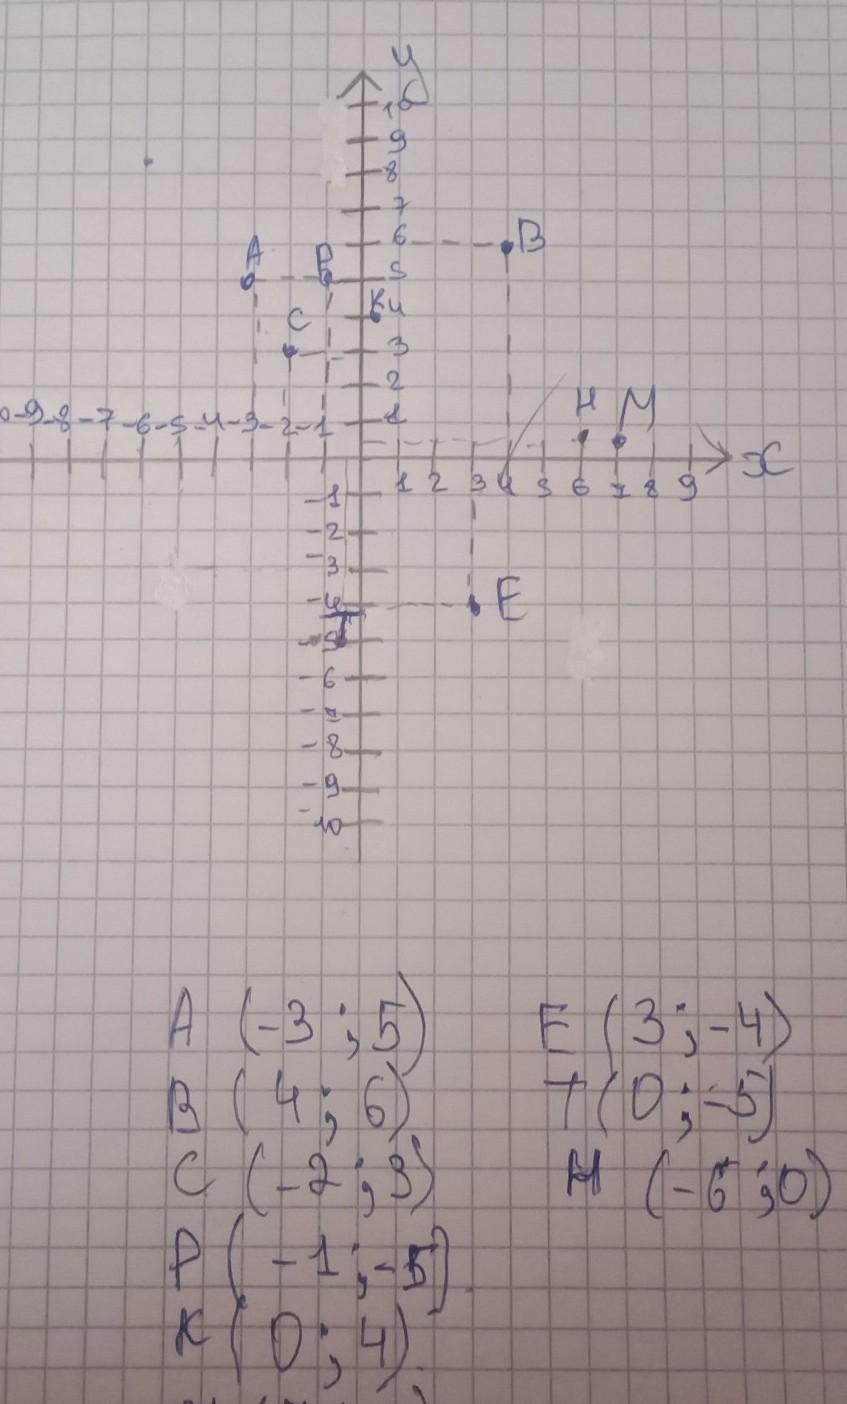 y
10
9
8
7
A P 6 B
5
K 4
C 3
2
-9 -8 -7 -6 -5 -4 -3 -2 -1 1 H M
x
1 2 3 4 5 6 7 8 9
-1
-2
-3
-4 E
T
-5
-6
-7
-8
-9
-10
A (-3; 5) E (3; -4)
B (4; 6) T (0; -5)
C (-2; 3) H (-6; 0)
P (-1; -5)
K (0; 4)